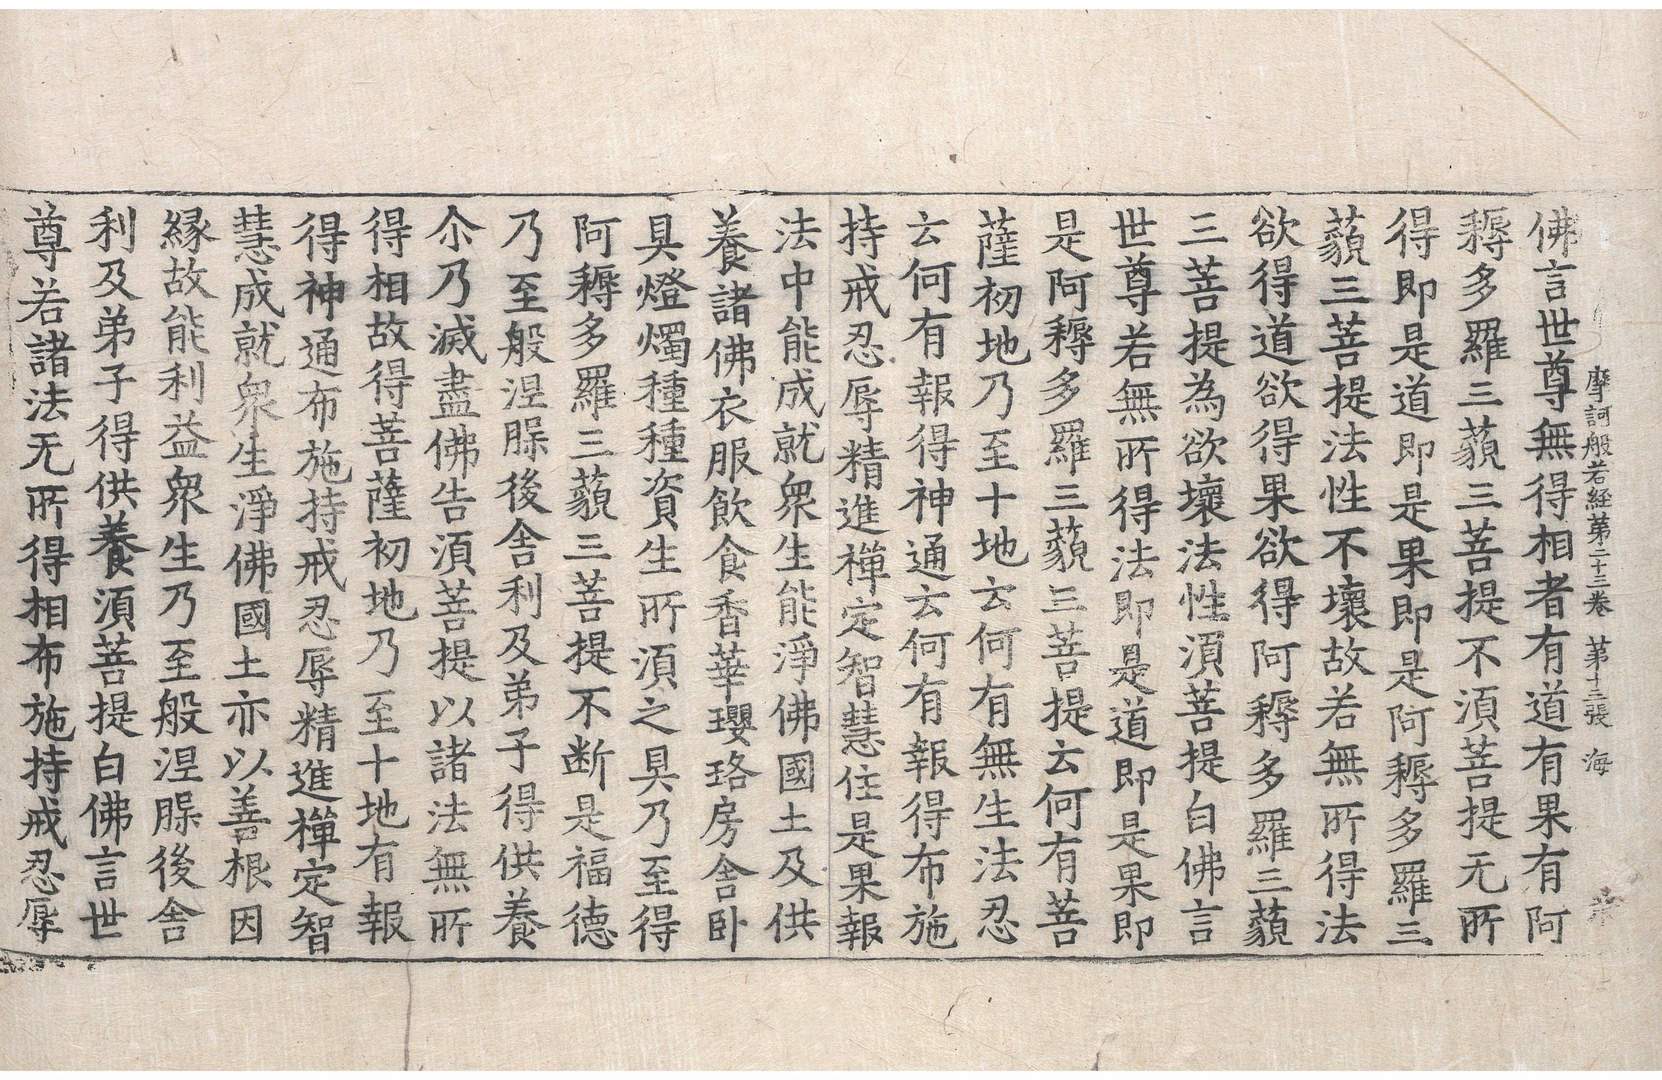 摩訶般若経第二十三卷 第十三張 海
佛言世尊無得相者有道有果有阿
耨多羅三藐三菩提不湏菩提无所
得即是道即是果即是阿耨多羅三
藐三菩提法性不壞故若無所得法
欲得道欲得果欲得阿耨多羅三藐
三菩提為欲壞法性湏菩提白佛言
世尊若無所得法即是道即是果即
是阿耨多羅三藐三菩提云何有菩
薩初地乃至十地云何有無生法忍
云何有報得神通云何有報得布施
持戒忍辱精進禪定智慧住是果報
法中能成就衆生能淨佛國土及供
養諸佛衣服飲食香華瓔珞房舎卧
具燈燭種種資生所湏之具乃至得
阿耨多羅三藐三菩提不断是福德
乃至般涅槃後舎利及弟子得供養
尒乃滅盡佛告湏菩提以諸法無所
得相故得菩薩初地乃至十地有報
得神通布施持戒忍辱精進禪定智
慧成就衆生淨佛國土亦以善根因
縁故能利益衆生乃至般涅槃後舎
利及弟子得供養湏菩提白佛言世
尊若諸法无所得相布施持戒忍辱